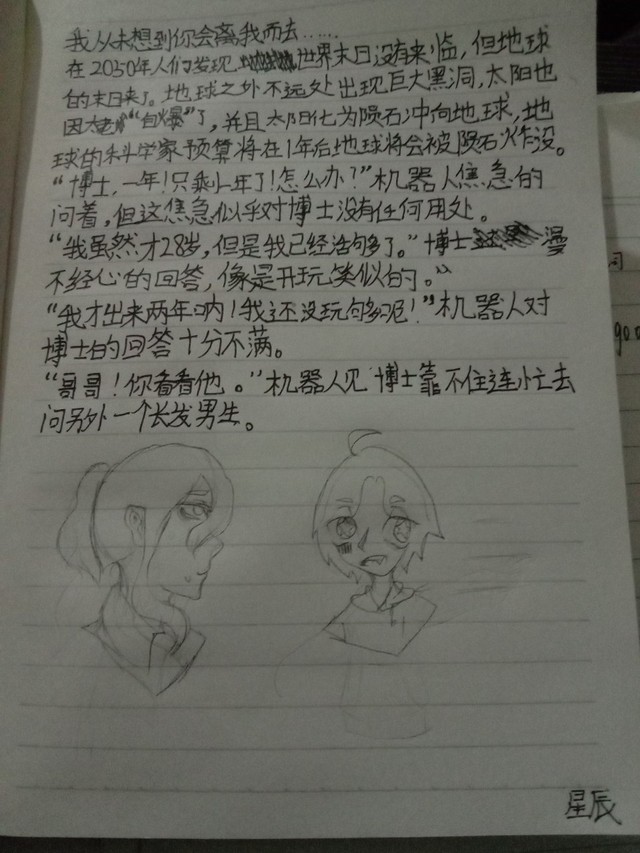 我从未想到你会离我而去……
在2050年人们发现 世界末日没有来临，但地球
的末日来了。地球之外不远处出现巨大黑洞，太阳也
因 "自爆"了，并且太阳化为陨石冲向地球，地
球的科学家预算将在1年后地球将会被陨石炸没。
"博士，一年！只剩一年了！怎么办？"机器人焦急的
问着，但这焦急似乎对博士没有任何用处。
"我虽然才28岁，但是我已经活够多了。"博士 漫
不经心的回答，像是开玩笑似的。
"我才出来两年呐！我还没玩够多呢！"机器人对
博士的回答十分不满。
"哥哥！你看看他。"机器人见博士靠不住连忙去
问另外一个长发男生。
星辰